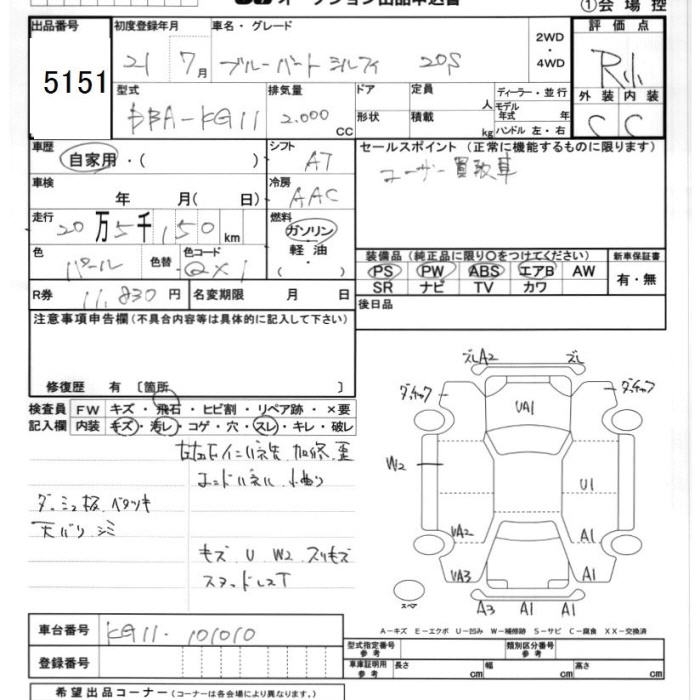 オークション出品申込書
①会場控
出品番号 初度登録年月 車名・グレード 評価点
5151 21 7月 ブルーバード シルフィ 20S 2WD・4WD R
外装 内装
C C
型式 排気量 ドア 定員 人 ディーラー・並行
DBA-KG11 2.000 CC 形状 積載 kg モデル年式 年
ハンドル 左・右
車歴 シフト セールスポイント (正常に機能するものに限ります)
自家用・( ) AT ユーザー買取車
車検 冷房
年 月(日) AAC
走行 燃料
20万5千150km ガソリン
軽油
・
色 色替 色コード ( )
パール QX1
装備品(純正品に限り○をつけてください) 新車保証書
PS PW ABS エアB AW 有・無
SR ナビ TV カワ
R券 11,830円 名変期限 月 日 後日品
注意事項申告欄(不具合内容等は具体的に記入して下さい)
修復歴 有 〔箇所 〕
検査員 FW キズ・飛石・ヒビ割・リペア跡・×要
記入欄 内装 キズ・汚レ・コゲ・穴・スレ・キレ・破レ
コアパネル
ダッシュ板 ベタツキ
天バリ シミ
キズ U W2 スリキズ
スタッドレスT
ズレA2 ズレ
ダッチョウ ダッチョウ
UA1
W2 U1
UA2 A1
UA3 A1
スペア A3 A1 A1
A-キズ E-エクボ U-凹み W-補修跡 S-サビ C-腐食 XX-交換済
車台番号 KG11-101010
登録番号
型式指定番号 参考 類別区分番号 参考
車庫証明用 参考 長さ cm 幅 cm 高さ cm
希望出品コーナー(コーナーは各会場により異なります。)